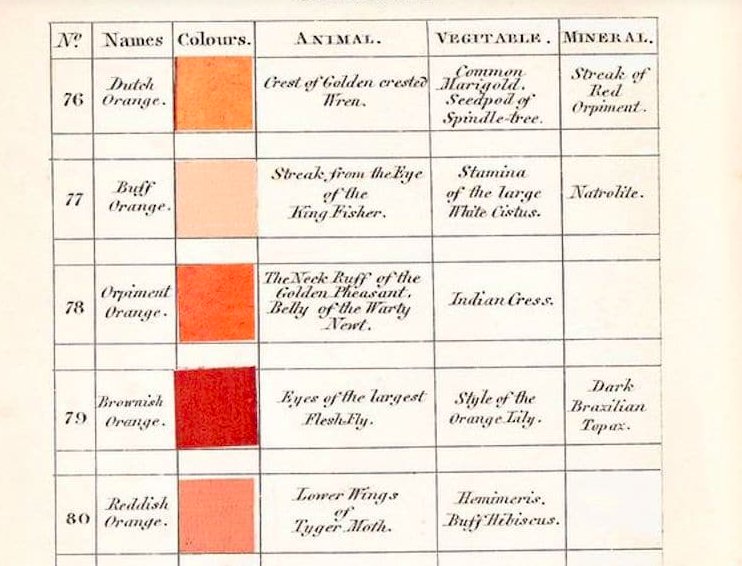 No. Names Colours. ANIMAL. VEGITABLE. MINERAL.
76 Dutch Orange. Crest of Golden crested Wren. Common Marigold. Seedpod of Spindle-tree. Streak of Red Orpiment.
77 Buff Orange. Streak from the Eye of the King Fisher. Stamina of the large White Cistus. Natrolite.
78 Orpiment Orange. The Neck Ruff of the Golden Pheasant. Belly of the Warty Newt. Indian Cress.
79 Brownish Orange. Eyes of the largest Flesh Fly. Style of the Orange Lily. Dark Brazilian Topaz.
80 Reddish Orange. Lower Wings of Tyger Moth. Hemimeris. Buff Hibiscus.